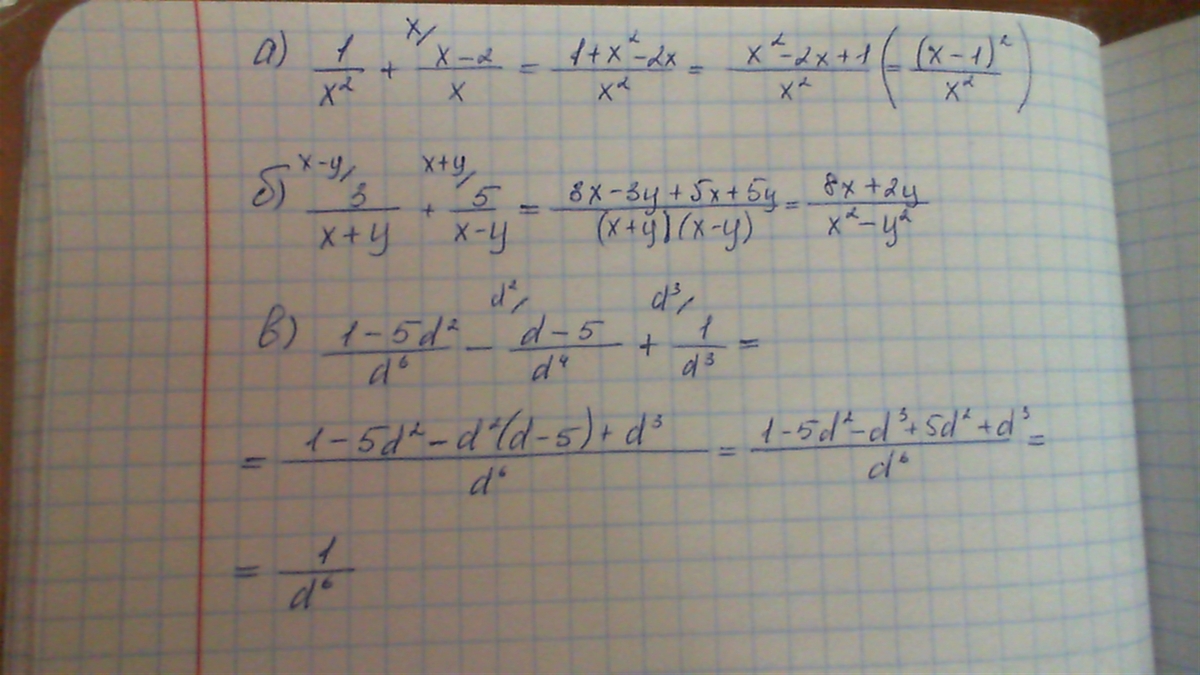 а) 1/x² + ˣ⁄ (x-2)/x = (1+x²-2x)/x² = (x²-2x+1)/x² (= (x-1)²/x²)
б) x-y⁄ 3/(x+y) + x+y⁄ 5/(x-y) = (3x-3y+5x+5y)/((x+y)(x-y)) = (8x+2y)/(x²-y²)
в) (1-5d²)/d⁶ - d²⁄ (d-5)/d⁴ + d³⁄ 1/d³ =
= (1-5d²-d²(d-5)+d³)/d⁶ = (1-5d²-d³+5d²+d³)/d⁶ =
= 1/d⁶